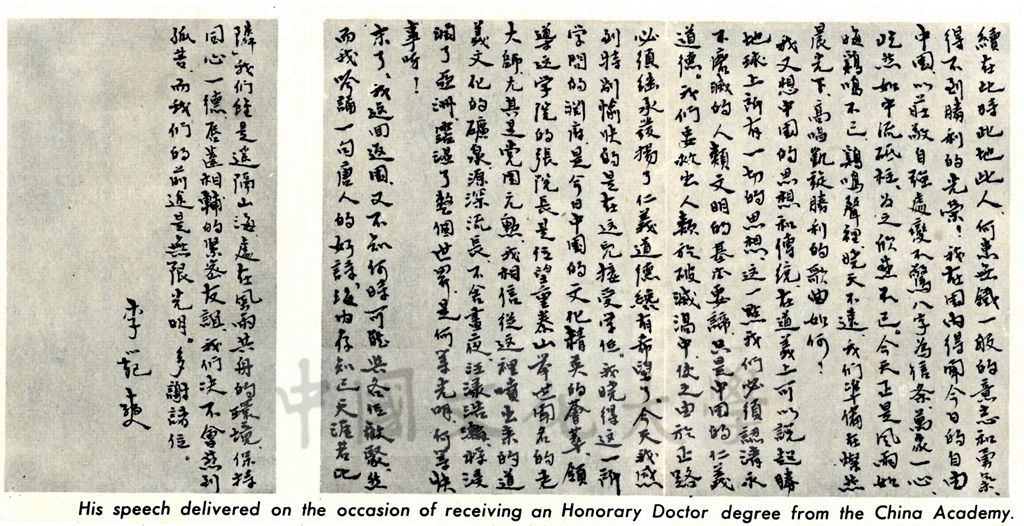 續在此時此地此人,何患無鐵一般的意志和勇氣,
得不到勝利的光榮!我在国內得聞今日的自由
中国,以莊敬自強處變不驚八字為信条,萬衆一心,
屹然如中流砥柱,為之欣慰不已。今天正是風雨如
晦,鷄鳴不已,鷄鳴聲裡,曉天不遠,我们準備在燦然
晨光下,高唱凱旋勝利的歌曲如何?
我又想中国的思想和傳統在道義上可以說起勝
地球上所有一切的思想,這一點我们必須認清,永
不磨滅的人類文明的基本要諦,只是中国的仁義
道德。我们要救出人類於破滅渦中,使之由於正路
必須繼承發揚了仁義道德,纔有希望了。今天我感
到特別愉快的是在這兒接受学位。我曉得這一所
学問的淵府,是今日中国的文化精英的薈萃,領
導這学院的張院長,是位望重泰山,舉世聞名的老
大師,尤其是黨国元勳,我相信從這裡噴出來的道
義文化的礦泉,源深流長,不舍晝夜,汪漾浩瀚,將浸
潤了亞洲,霑溼了整個世界,是何等光明,何等快
事呀!
末了,我返回返国,又不知何時可能與各位歡聚,然
而我吟誦一句唐人的好詩,海內存知己,天涯若比
隣,我们雖是遥隔山海,處在風雨共舟的環境,保持
同心一德唇齒相輔的緊密友誼,我们决不會感到
孤苦,而我们的前途是無限光明。多謝諸位。
李範奭
中國文化大學
His speech delivered on the occasion of receiving an Honorary Doctor degree from the China Academy.